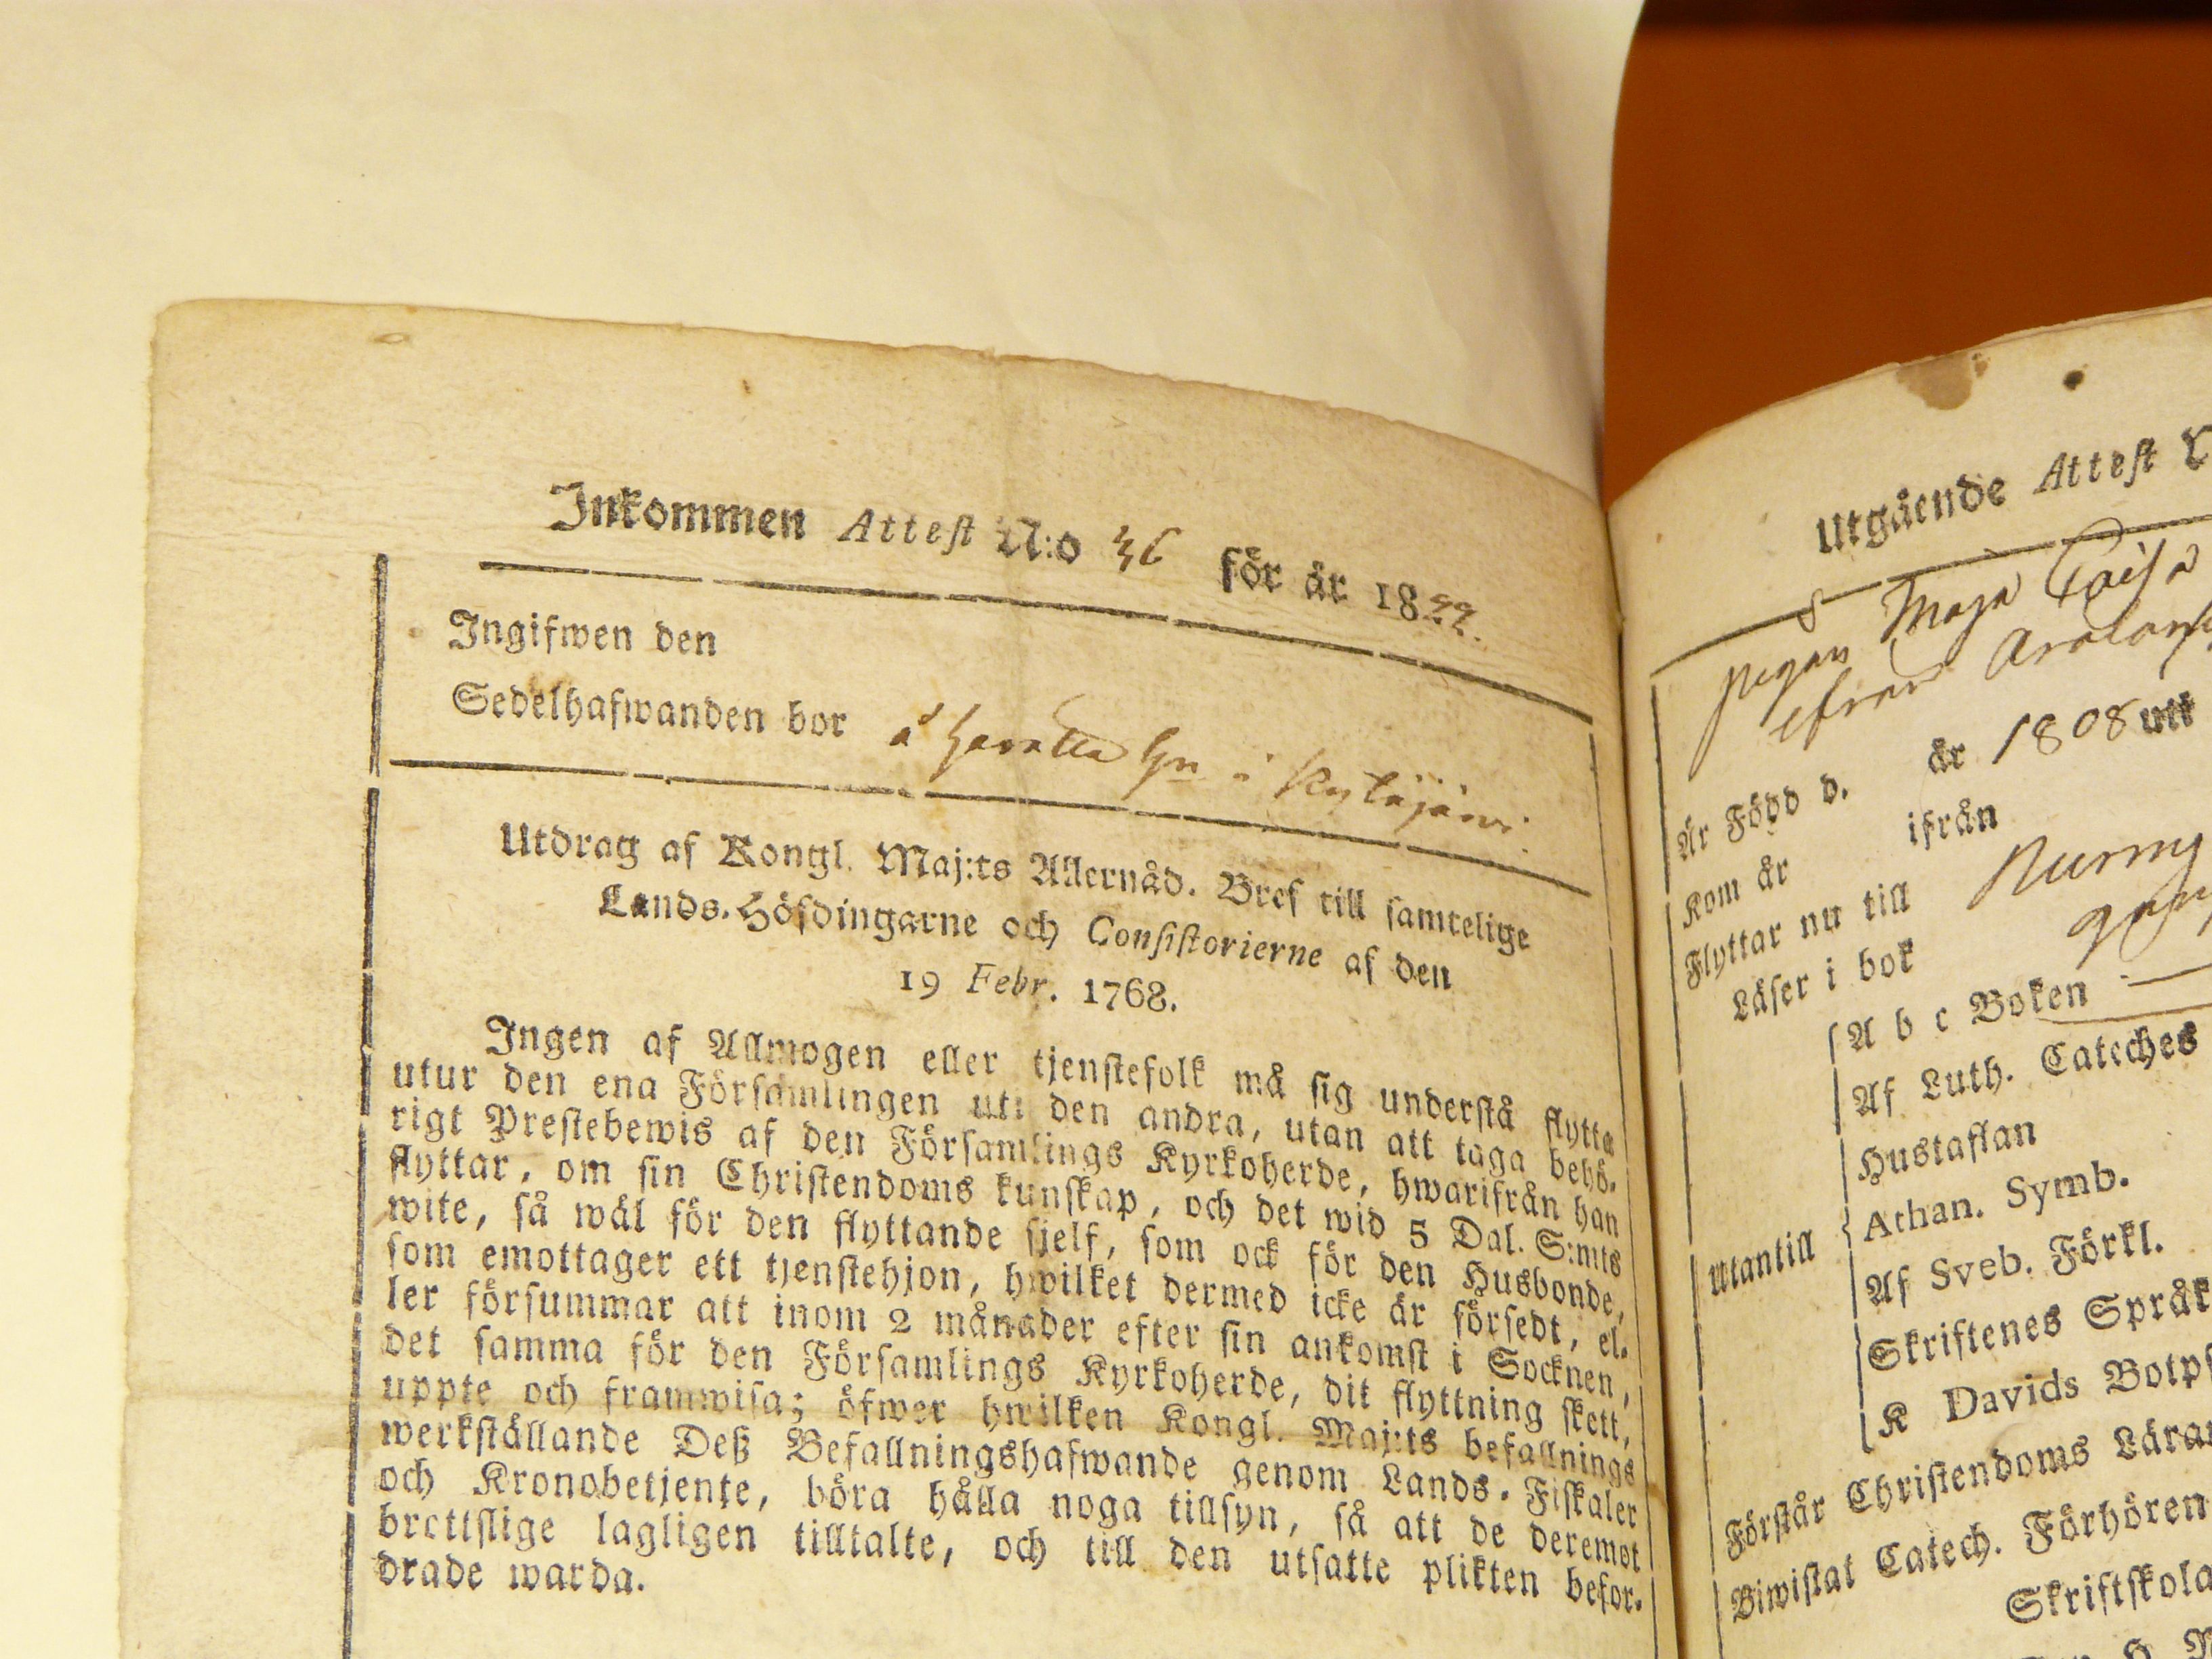 Inkommen Attest N:o 36 för år 1822.
Ingifwen den
Sedelhafwanden bor å i Kytäjärwi.
Utdrag af Kongl. Maj:ts Allernåd. Bref till samtelige
Lands-Höfdingarne och Consistorierne af den
19 Febr. 1768.
Ingen af Allmogen eller tjenstefolk må sig understå flytta
utur den ena Församlingen uti den andra, utan att taga behö-
rigt Prestebewis af den Församlings Kyrkoherde, hwarifrån han
flyttar, om sin Christendoms kunskap, och det wid 5 Dal. S:mts
wite, så wäl för den flyttande sjelf, som ock för den Husbonde,
som emottager ett tjenstehjon, hwilket dermed icke är försedt, el-
ler försummar att inom 2 månader efter sin ankomst i Socknen,
det samma för den Församlings Kyrkoherde, dit flyttning skett,
uppte och framwisa; öfwer hwilken Kongl. Maj:ts befallnings
werkställande Deß Befallningshafwande genom Lands-Fiskaler
och Kronobetjente, böra hålla noga tillsyn, så att de deremot
brottslige lagligen tilltalte, och till den utsatte plikten befor-
drade warda.
Utgående Attest
pigan Maja Caisa
ifrån
Är Född d. år 1808 utt
Kom år ifrån
Flyttar nu till Nurmi
Läser i bok
Utantill
A b c Boken
Af Luth. Cateches
Hustaflan
Athan. Symb.
Af Sveb. Förkl.
Skriftenes Språk
K Davids Botps
Förstår Christendoms Läran
Biwistat Catech. Förhören
Skriftskola